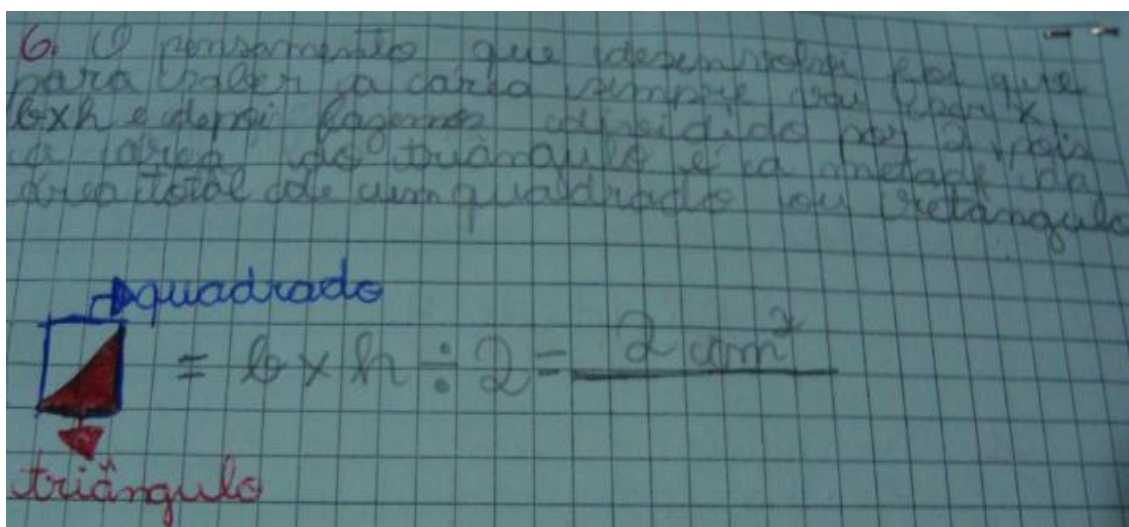 6. O pensamento que desenvolvi foi que
para saber a área sempre vou usar x,
bxh e depoi fazemos dividido por 2, pois
a área do triângulo é a metade da
área total de um quadrado ou retângulo
quadrado
= b x h ÷ 2 = 2 cm²
triângulo